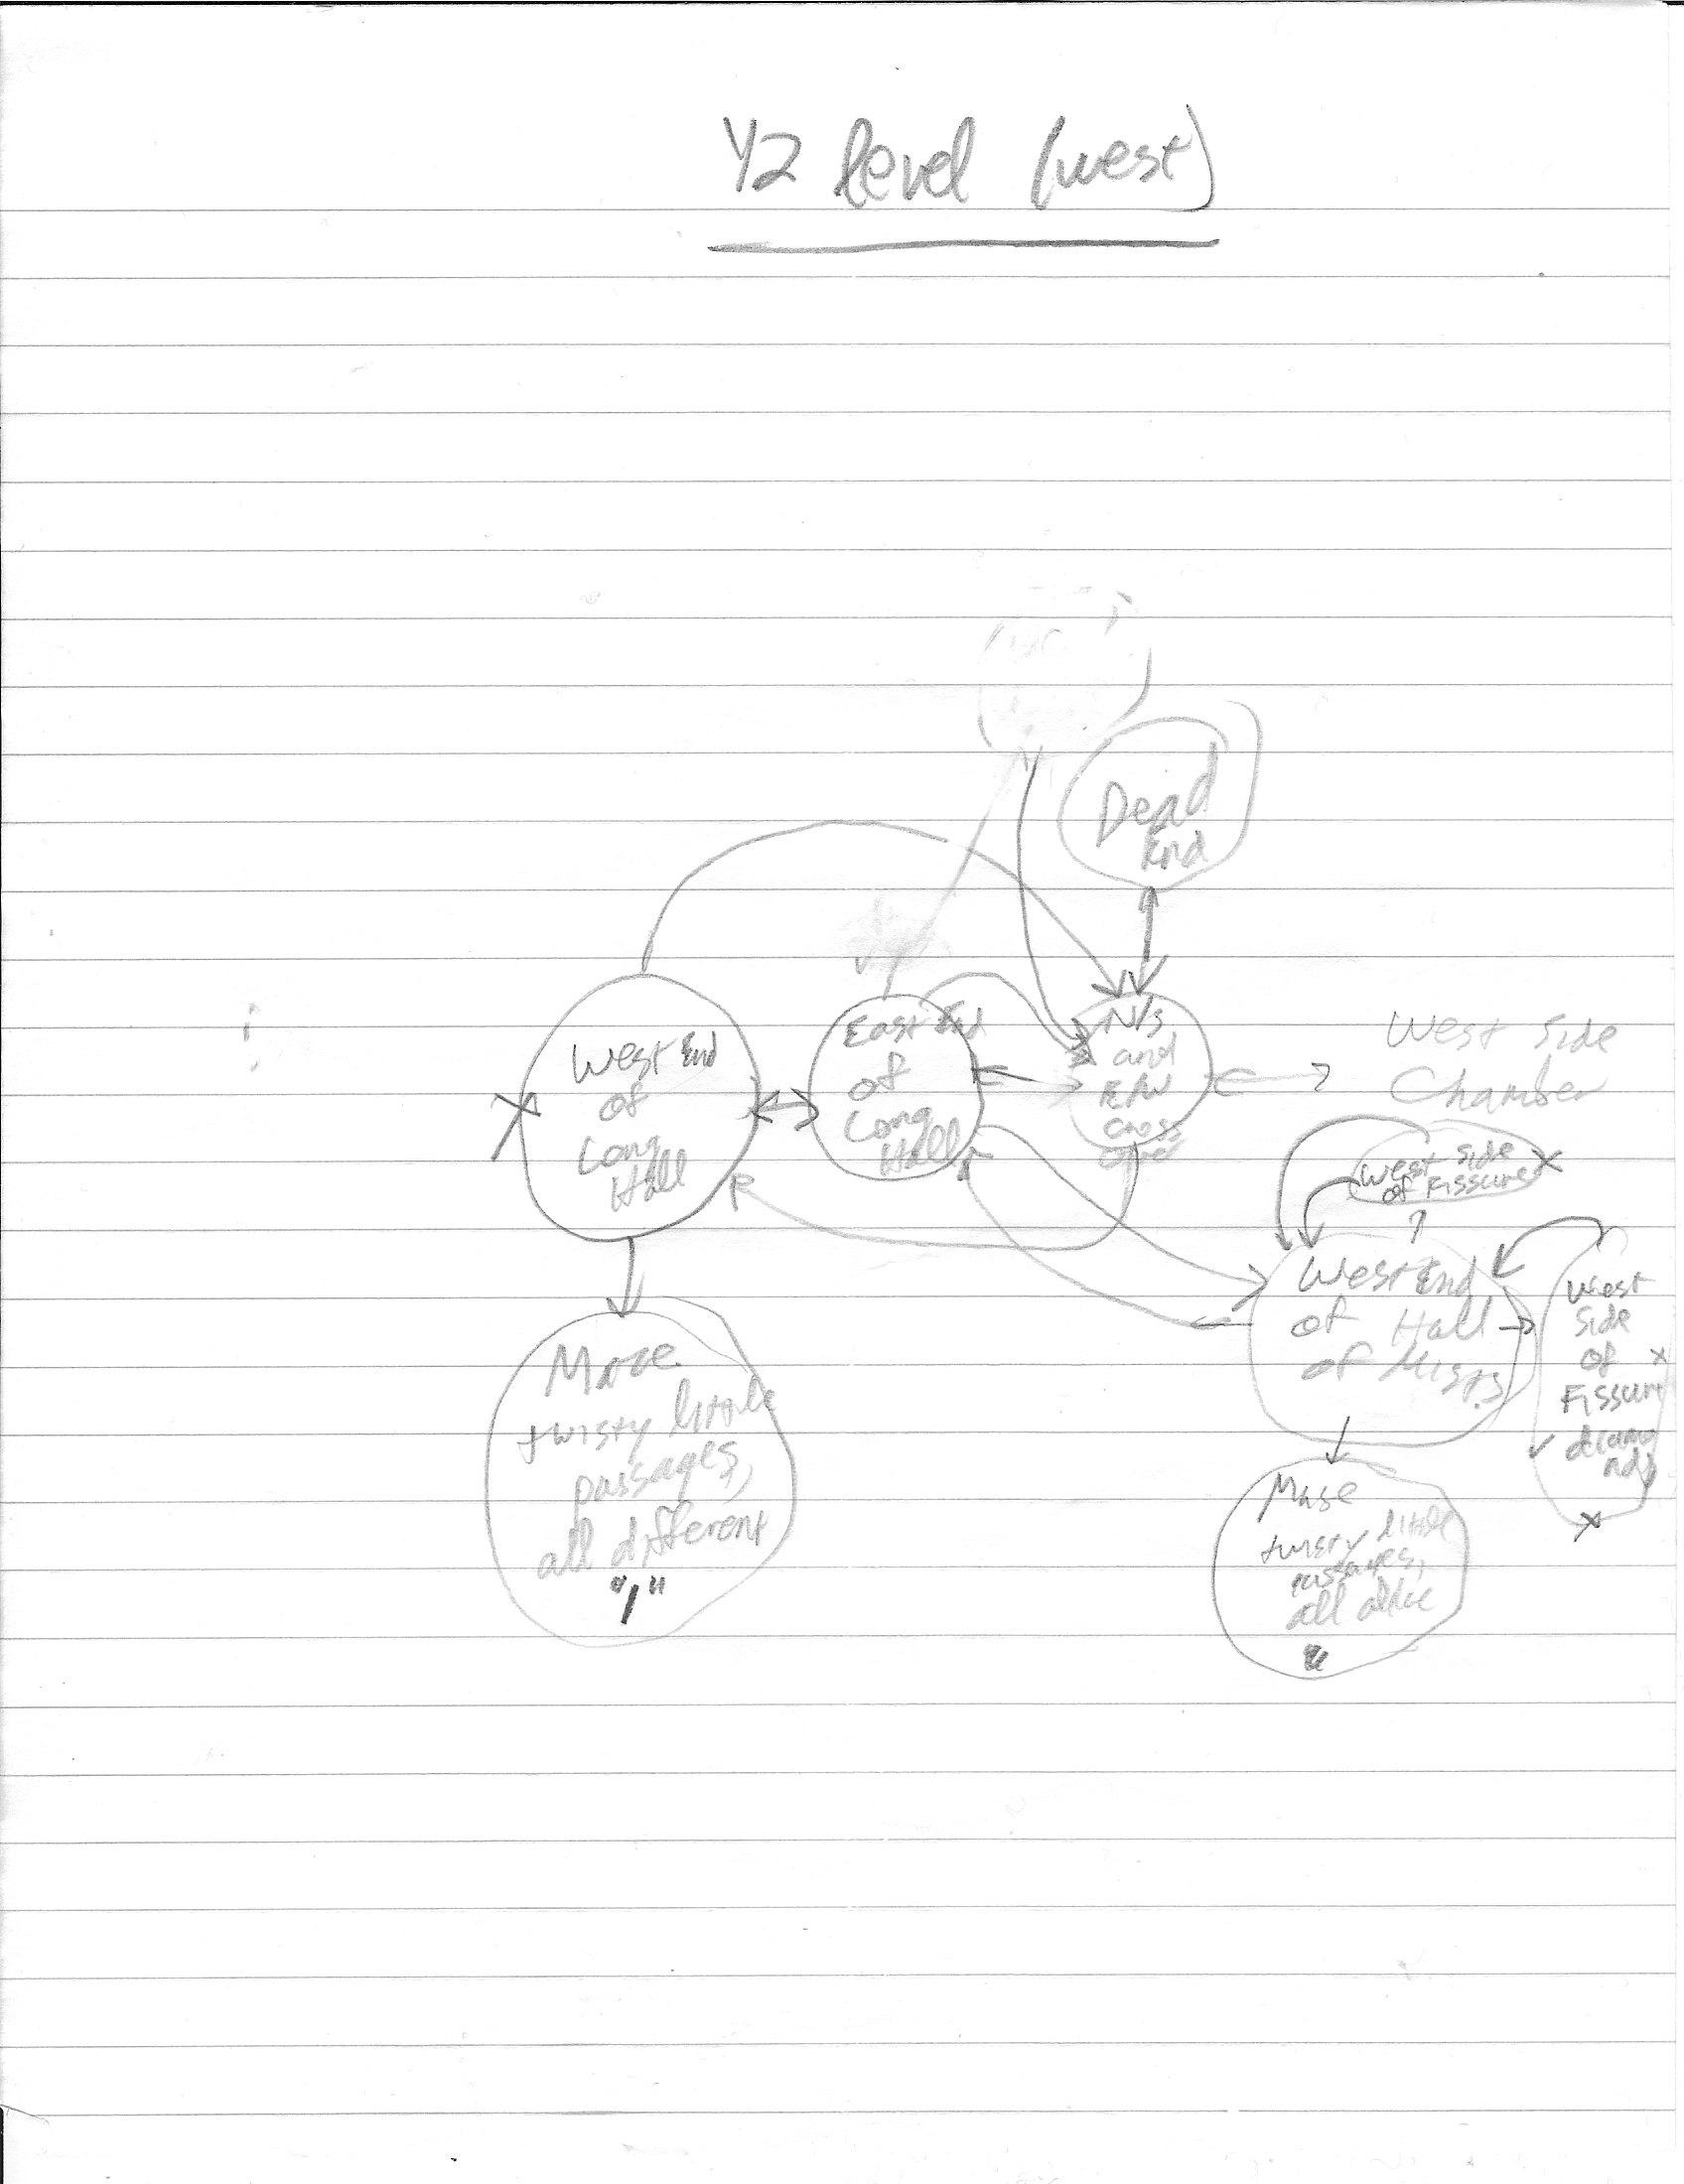 Y2 level (west)
Dead
End
West End
of
Long
Hall
East End
of
Long
Hall
N/S
and
E/W
cross
over
West Side
Chamber
West Side
of Fissure
West End
of Hall
of Mists
West
Side
of
Fissure
Maze
twisty little
passages,
all different
","
Maze
twisty little
passages,
all alike